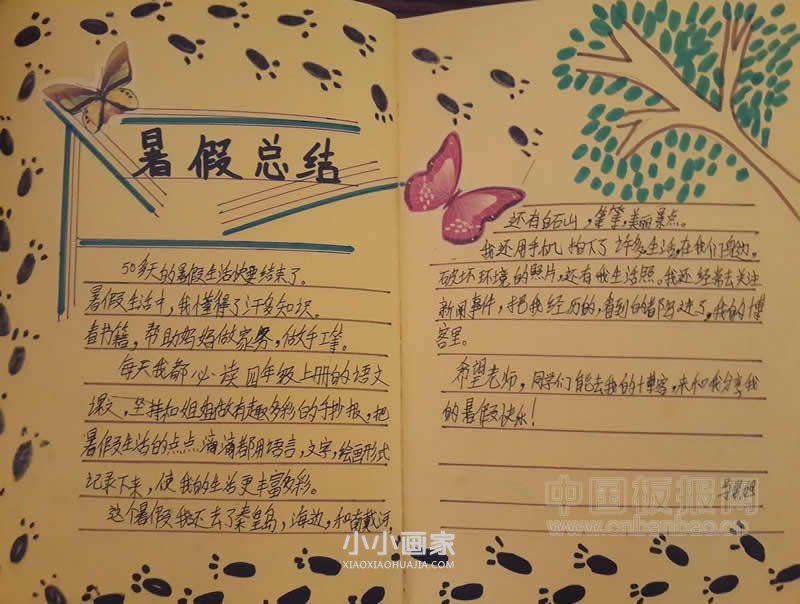 暑假总结
50多天的暑假生活快要结束了。
暑假生活中，我懂得了许多知识。
看书籍，帮助妈妈做家务，做手工等。
每天我都必读四年级上册的语文
课文，坚持和姐姐做有趣多彩的手抄报，把
暑假生活的点点滴滴都用语言，文字，绘画形式
记录下来，使我的生活更丰富多彩。
这个暑假我还去了秦皇岛，海边，和南戴河，
还有白石山，等等，美丽景点。
我还用手机拍下了许多生活，在我们身边。
破坏环境的照片，还有我生活照。我还经常去关注
新闻事件，把我经历的，看到的都写进了，我的博
客里。
希望老师，同学们能去我的博客，来和我分享我
的暑假快乐！
中国板报网
www.cnbanbao.cn
小小画家
XIAOXIAOHUAJIA.COM